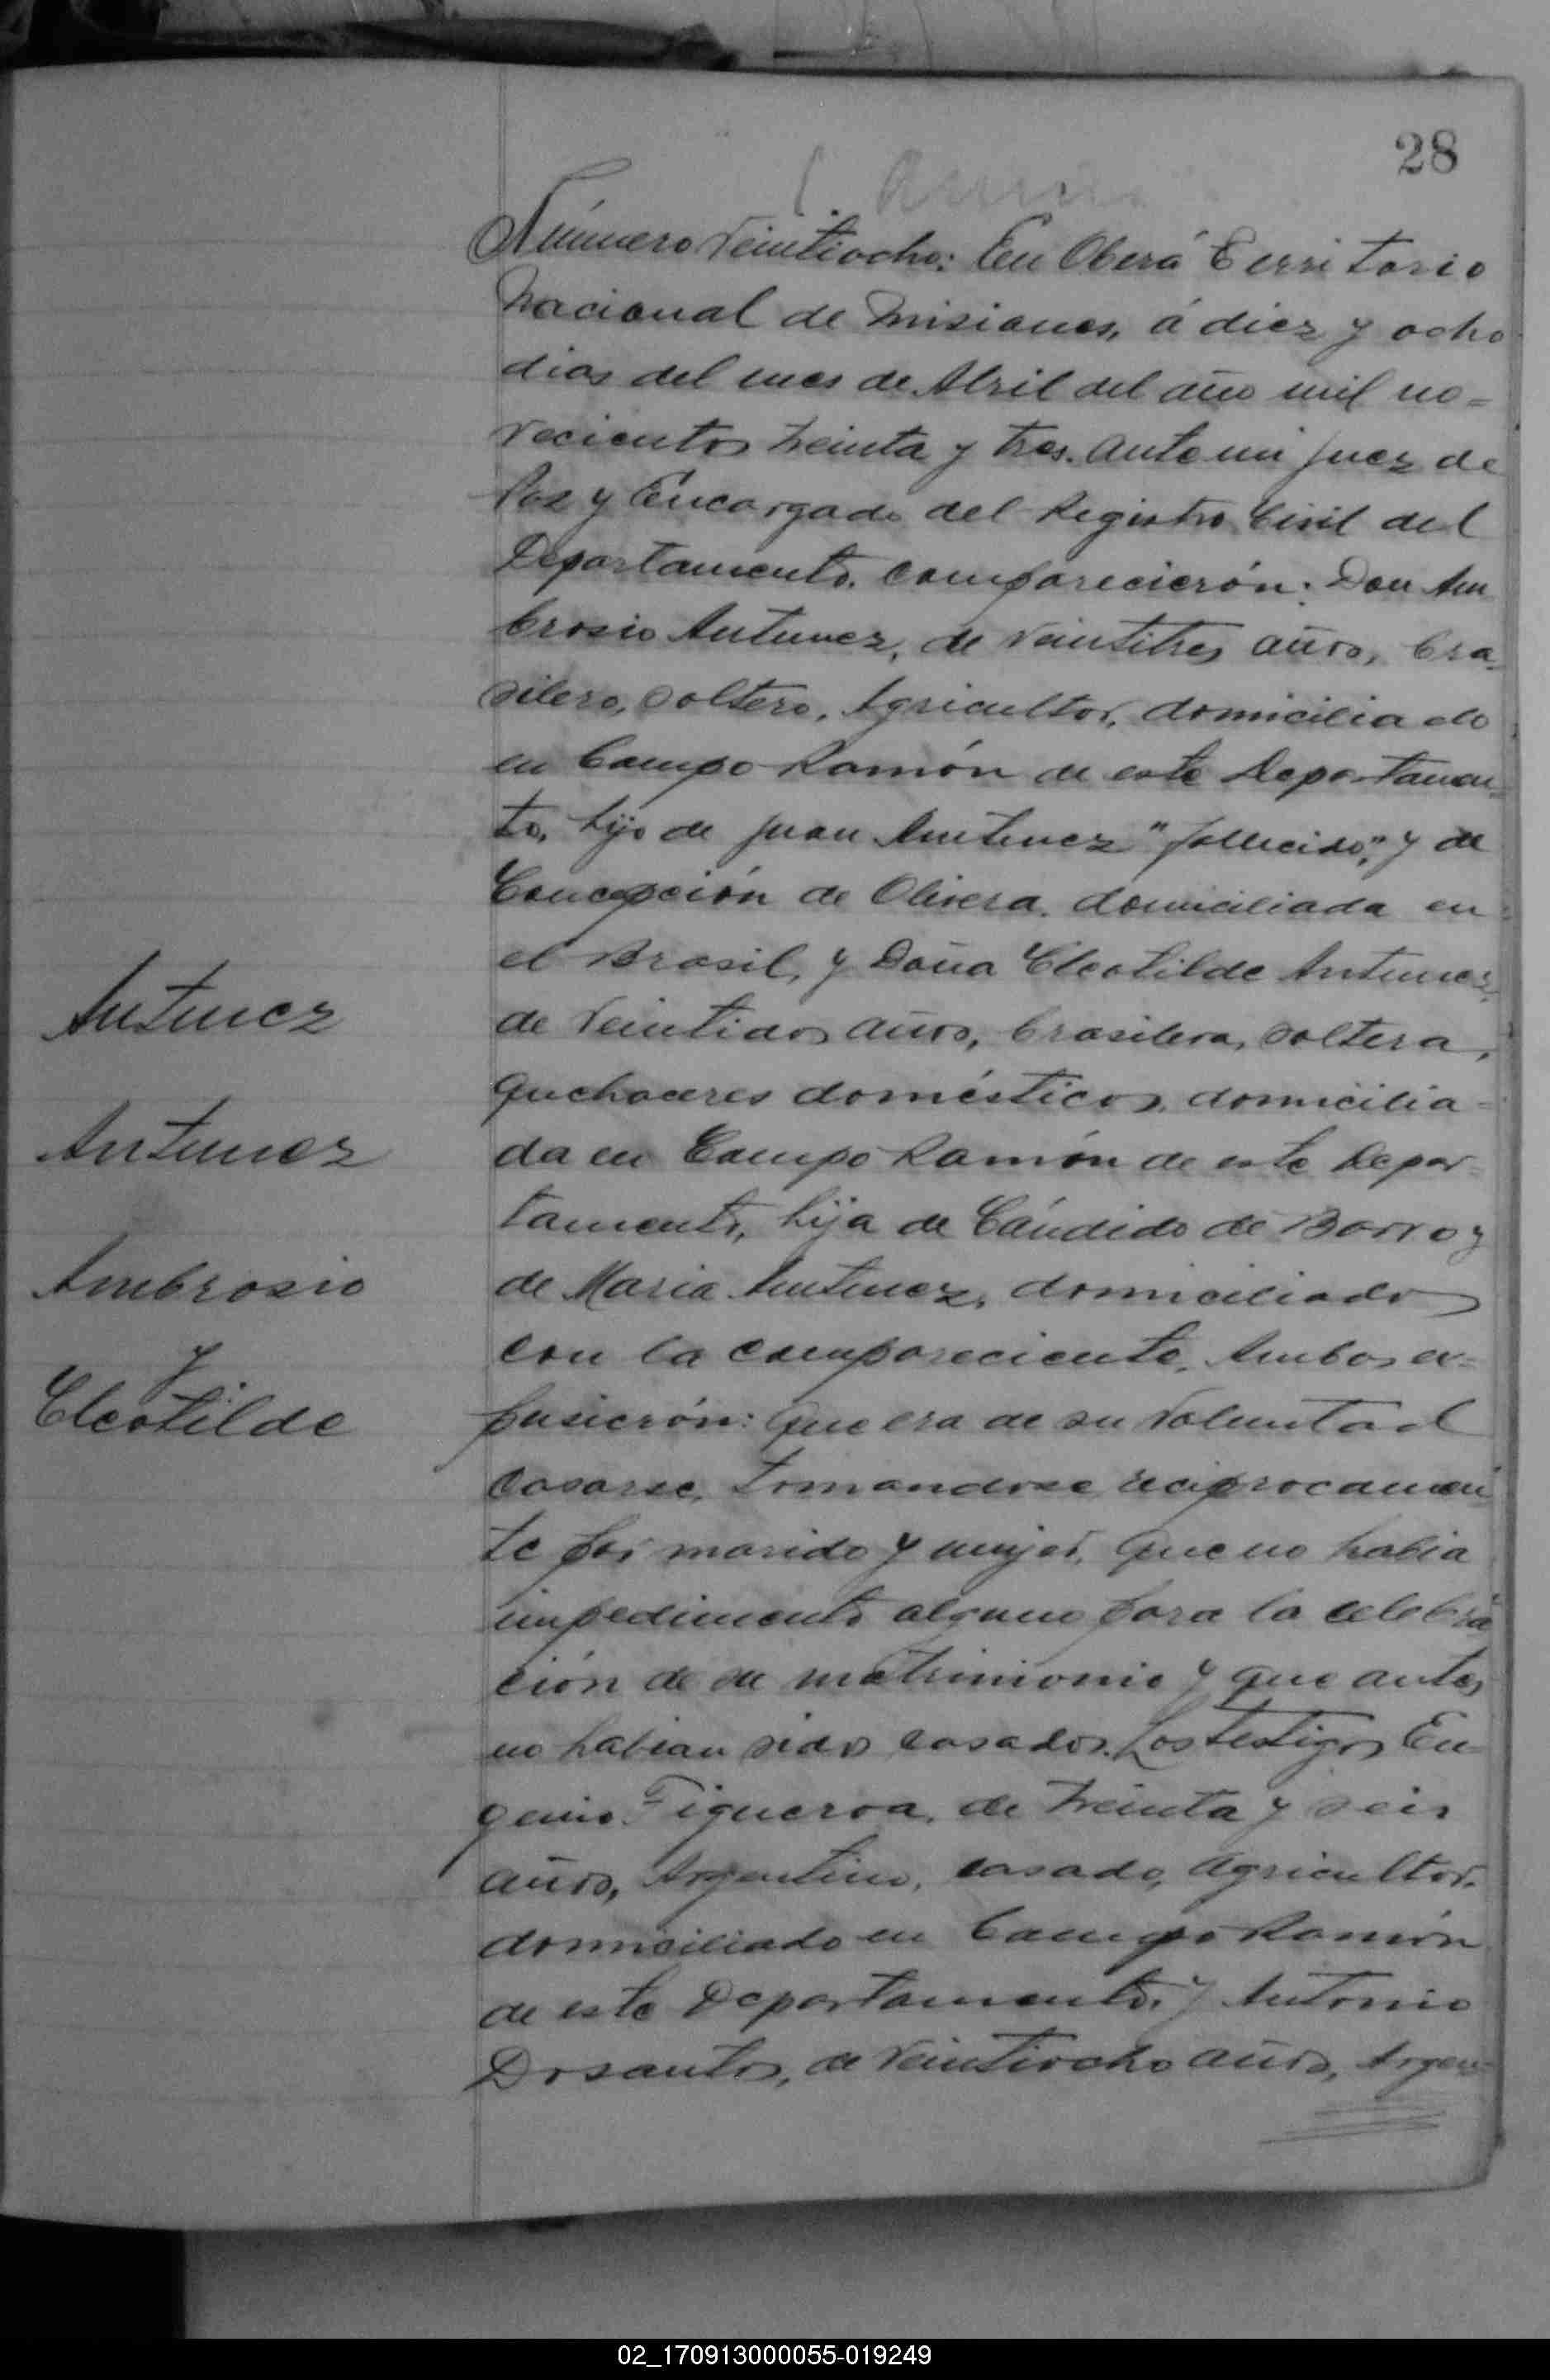 28
Número Veintiocho: En Oberá Territorio
Nacional de Misiones, á diez y ocho
dias del mes de Abril del año mil no-
vecientos treinta y tres. ante mi Juez de
Paz y Encargado del Registro Civil del
Departamento. comparecierón: Don Am
brosio Antunez, de veintitres años, bra-
silero, soltero, Agricultor, domiciliado
en Campo Ramón de este Departamen-
to, hijo de Juan Antunez "fallecido", y de
Concepción de Olivera. domiciliada en
el Brasil, y Doña Cleotilde Antunez,
de veintidos años, brasilera, soltera,
quehaceres domésticos, domicilia-
da en Campo Ramón de este Depar-
tamento, hija de Cándido de Barro y
de Maria Antunez, domiciliados
con la compareciente. Ambos ex-
pusierón: que era de su voluntad
casarse, tomandose reciprocamen
te por marido y mujer, que no habia
impedimento alguno para la celebra
ción de su matrimonio y que antes
no habian sido casados. Los testigos Eu-
genio Figueroa, de treinta y seis
años, Argentino, casado, agricultor.
domiciliado en Campo Ramón
de este Departamento, y Antonio
Dosantos, de veintiocho años, Argen-
Antunez
Antunez
Ambrosio
y
Cleotilde
02_170913000055-019249